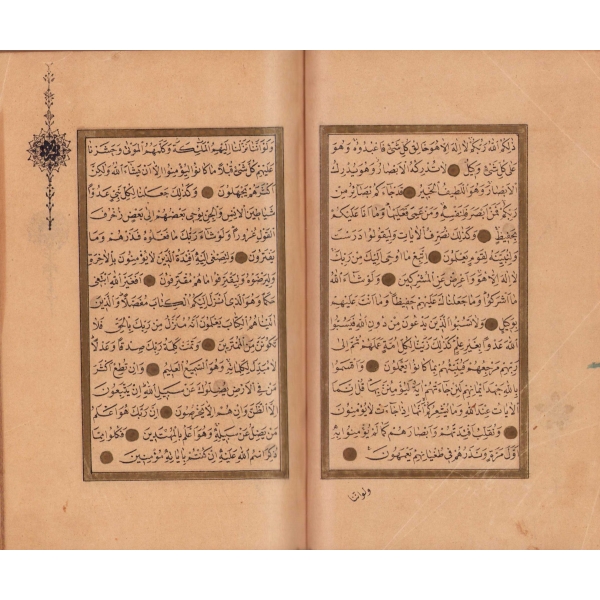 ذٰلِكُمُ اللّٰهُ رَبُّكُمْ لَا اِلٰهَ اِلَّا هُوَ خَالِقُ كُلِّ شَئٍ فَاعْبُدُوهُ وَهُوَ
عَلٰى كُلِّ شَئٍ وَكِيلٌ لَا تُدْرِكُهُ الْاَبْصَارُ وَهُوَ يُدْرِكُ
الْاَبْصَارَ وَهُوَ اللَّطِيفُ الْخَبِيرُ قَدْ جَاءَكُمْ بَصَائِرُ مِنْ
رَبِّكُمْ فَمَنْ اَبْصَرَ فَلِنَفْسِهِ وَمَنْ عَمِيَ فَعَلَيْهَا وَمَا اَنَا عَلَيْكُمْ
بِحَفِيظٍ وَكَذٰلِكَ نُصَرِّفُ الْاٰيَاتِ وَلِيَقُولُوا دَرَسْتَ
وَلِنُبَيِّنَهُ لِقَوْمٍ يَعْلَمُونَ اِتَّبِعْ مَا اُوحِيَ اِلَيْكَ مِنْ رَبِّكَ
لَا اِلٰهَ اِلَّا هُوَ وَاَعْرِضْ عَنِ الْمُشْرِكِينَ وَلَوْ شَاءَ اللّٰهُ
مَا اَشْرَكُوا وَمَا جَعَلْنَاكَ عَلَيْهِمْ حَفِيظًا وَمَا اَنْتَ عَلَيْهِمْ
بِوَكِيلٍ وَلَا تَسُبُّوا الَّذِينَ يَدْعُونَ مِنْ دُونِ اللّٰهِ فَيَسُبُّوا
اللّٰهَ عَدْوًا بِغَيْرِ عِلْمٍ كَذٰلِكَ زَيَّنَّا لِكُلِّ اُمَّةٍ عَمَلَهُمْ ثُمَّ اِلٰى
رَبِّهِمْ مَرْجِعُهُمْ فَيُنَبِّئُهُمْ بِمَا كَانُوا يَعْمَلُونَ وَاَقْسَمُوا
بِاللّٰهِ جَهْدَ اَيْمَانِهِمْ لَئِنْ جَاءَتْهُمْ اٰيَةٌ لَيُؤْمِنُنَّ بِهَا قُلْ اِنَّمَا
الْاٰيَاتُ عِنْدَ اللّٰهِ وَمَا يُشْعِرُكُمْ اَنَّهَا اِذَا جَاءَتْ لَا يُؤْمِنُونَ
وَنُقَلِّبُ اَفْئِدَتَهُمْ وَاَبْصَارَهُمْ كَمَا لَمْ يُؤْمِنُوا بِهِ
اَوَّلَ مَرَّةٍ وَنَذَرُهُمْ فِي طُغْيَانِهِمْ يَعْمَهُونَ
ولو اننا
وَلَوْ اَنَّنَا نَزَّلْنَا اِلَيْهِمُ الْمَلٰئِكَةَ وَكَلَّمَهُمُ الْمَوْتٰى وَحَشَرْنَا
عَلَيْهِمْ كُلَّ شَئٍ قُبُلًا مَا كَانُوا لِيُؤْمِنُوا اِلَّا اَنْ يَشَاءَ اللّٰهُ وَلٰكِنَّ
اَكْثَرَهُمْ يَجْهَلُونَ وَكَذٰلِكَ جَعَلْنَا لِكُلِّ نَبِيٍّ عَدُوًّا
شَيَاطِينَ الْاِنْسِ وَالْجِنِّ يُوحِي بَعْضُهُمْ اِلٰى بَعْضٍ زُخْرُفَ
الْقَوْلِ غُرُورًا وَلَوْ شَاءَ رَبُّكَ مَا فَعَلُوهُ فَذَرْهُمْ وَمَا
يَفْتَرُونَ وَلِتَصْغٰى اِلَيْهِ اَفْئِدَةُ الَّذِينَ لَا يُؤْمِنُونَ بِالْاٰخِرَةِ
وَلِيَرْضَوْهُ وَلِيَقْتَرِفُوا مَا هُمْ مُقْتَرِفُونَ اَفَغَيْرَ اللّٰهِ اَبْتَغِي
حَكَمًا وَهُوَ الَّذِي اَنْزَلَ اِلَيْكُمُ الْكِتَابَ مُفَصَّلًا وَالَّذِينَ
اٰتَيْنَاهُمُ الْكِتَابَ يَعْلَمُونَ اَنَّهُ مُنَزَّلٌ مِنْ رَبِّكَ بِالْحَقِّ فَلَا
تَكُونَنَّ مِنَ الْمُمْتَرِينَ وَتَمَّتْ كَلِمَةُ رَبِّكَ صِدْقًا وَعَدْلًا
لَا مُبَدِّلَ لِكَلِمَاتِهِ وَهُوَ السَّمِيعُ الْعَلِيمُ وَاِنْ تُطِعْ اَكْثَرَ
مَنْ فِي الْاَرْضِ يُضِلُّوكَ عَنْ سَبِيلِ اللّٰهِ اِنْ يَتَّبِعُونَ
اِلَّا الظَّنَّ وَاِنْ هُمْ اِلَّا يَخْرُصُونَ اِنَّ رَبَّكَ هُوَ اَعْلَمُ
مَنْ يَضِلُّ عَنْ سَبِيلِهِ وَهُوَ اَعْلَمُ بِالْمُهْتَدِينَ فَكُلُوا مِمَّا
ذُكِرَ اسْمُ اللّٰهِ عَلَيْهِ اِنْ كُنْتُمْ بِاٰيَاتِهِ مُؤْمِنِينَ